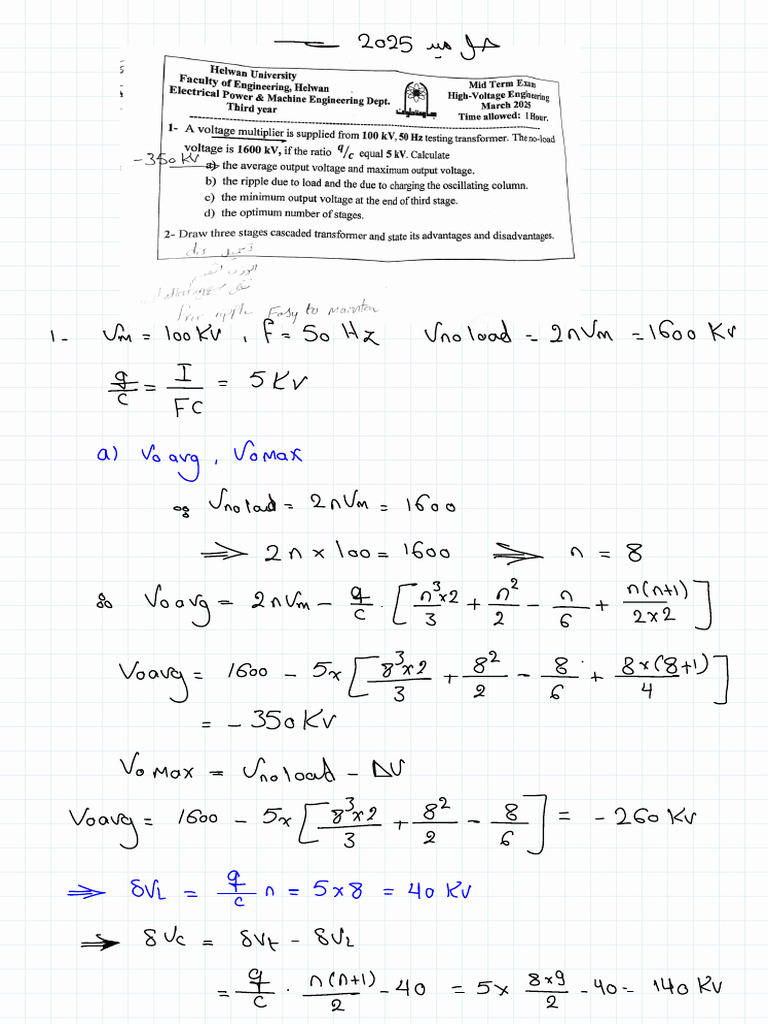 حل ميد 2025
Helwan University
Faculty of Engineering, Helwan
Electrical Power & Machine Engineering Dept.
Third year
Mid Term Exam
High-Voltage Engineering
March 2025
Time allowed: 1 Hour.
1- A voltage multiplier is supplied from 100 kV, 50 Hz testing transformer. The no-load
voltage is 1600 kV, if the ratio q/c equal 5 kV. Calculate
-350 kV
a) the average output voltage and maximum output voltage.
b) the ripple due to load and the due to charging the oscillating column.
c) the minimum output voltage at the end of third stage.
d) the optimum number of stages.
2- Draw three stages cascaded transformer and state its advantages and disadvantages.
free ripple Easy to
1- Vm = 100 KV, f = 50 Hz Vno load = 2nVm = 1600 KV
q/c = I/FC = 5 KV
a) Vo avg, Vo max
∵ Vno load = 2nVm = 1600
⇒ 2n × 100 = 1600 ⇒ n = 8
∴ Vo avg = 2nVm - q/c · [n³×2/3 + n²/2 - n/6 + n(n+1)/2×2]
Vo avg = 1600 - 5×[8³×2/3 + 8²/2 - 8/6 + 8×(8+1)/4]
= -350 KV
Vo max = Vno load - ΔV
Vo avg = 1600 - 5×[8³×2/3 + 8²/2 - 8/6] = -260 KV
⇒ δVL = q/c n = 5×8 = 40 KV
⇒ δVc = δVt - δVL
= q/c · n(n+1)/2 - 40 = 5× 8×9/2 - 40 = 140 KV